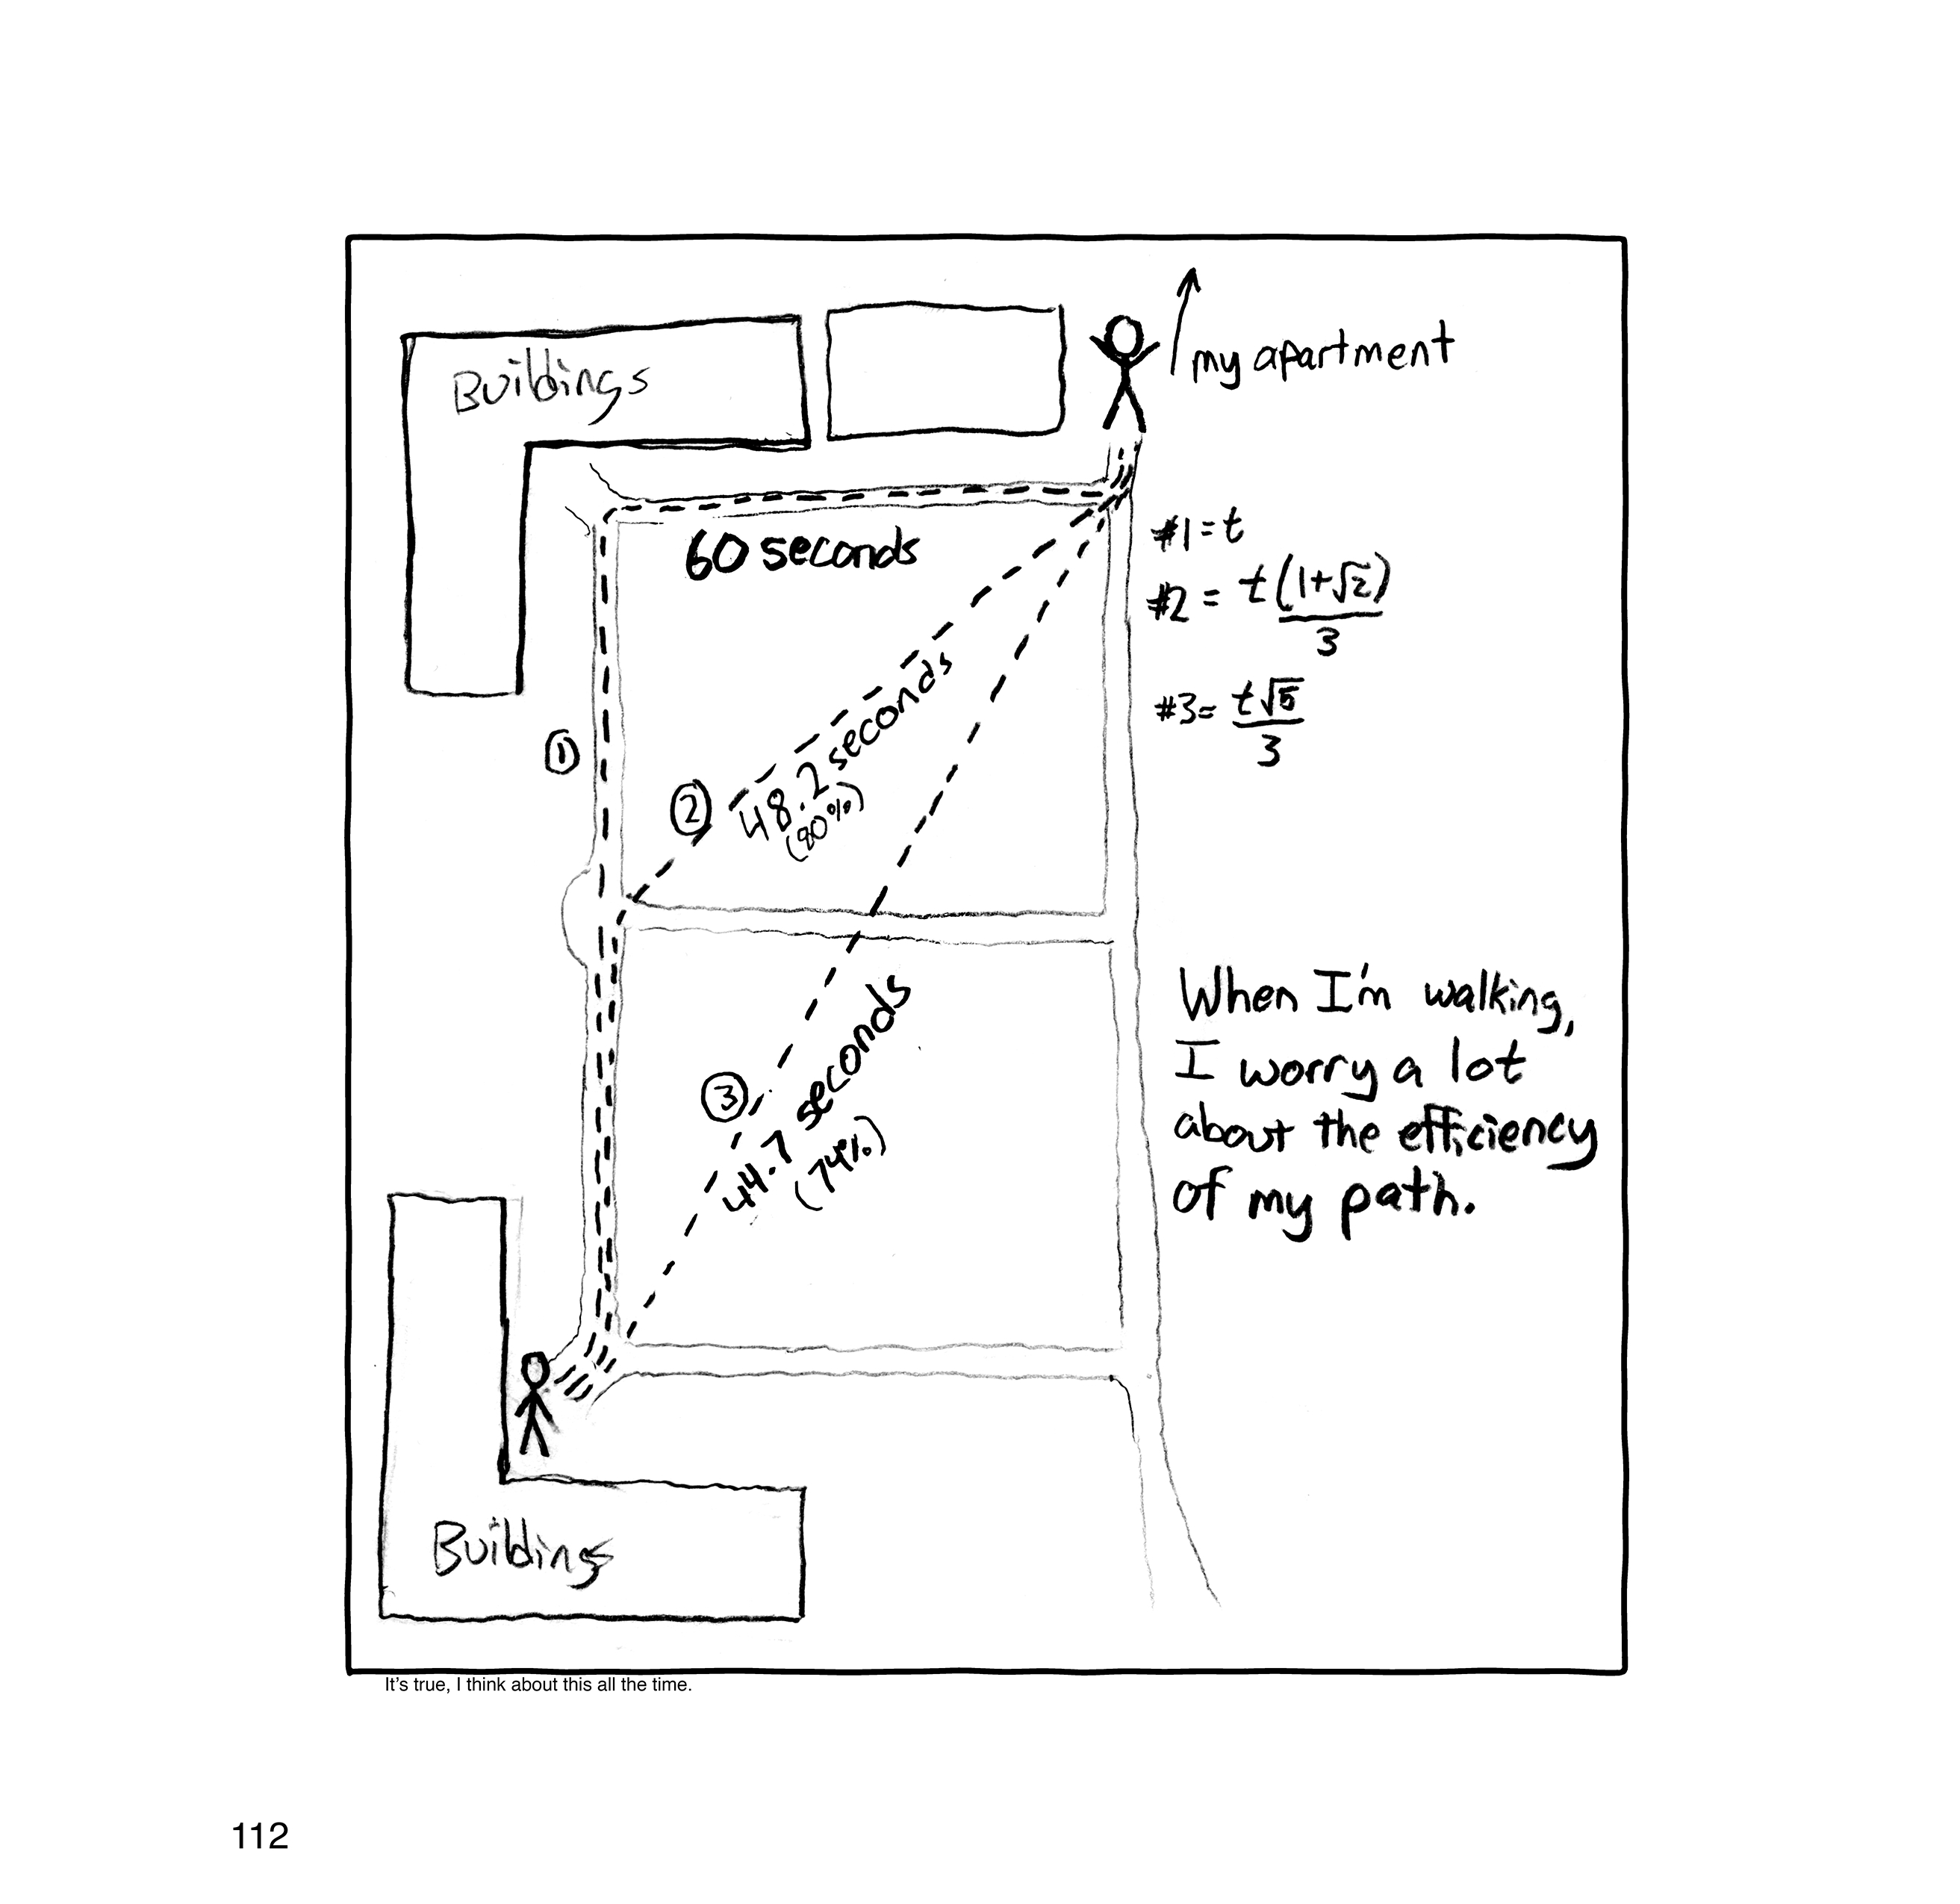 Buildings
my apartment
60 seconds
#1 = t
#2 = t(1+√2)
3
#3 = t√5
3
①
②
48.2 seconds
(80%)
③
44.7 seconds
(74%)
When I'm walking,
I worry a lot
about the efficiency
of my path.
Buildings
It's true, I think about this all the time.
112